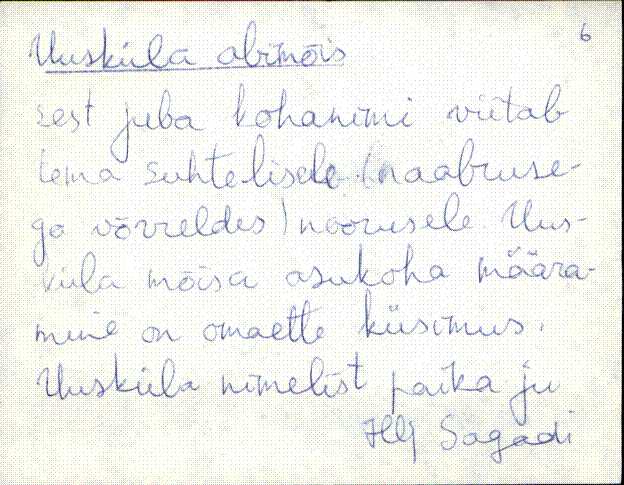 6
Uusküla abimõis
sest juba kohanimi viitab
tema suhtelisele (naabruse-
ga võrreldes) noorusele Uus-
küla mõisa asukoha määra-
mine on omaette küsimus.
Uusküla nimelist paika ju
Sagadi